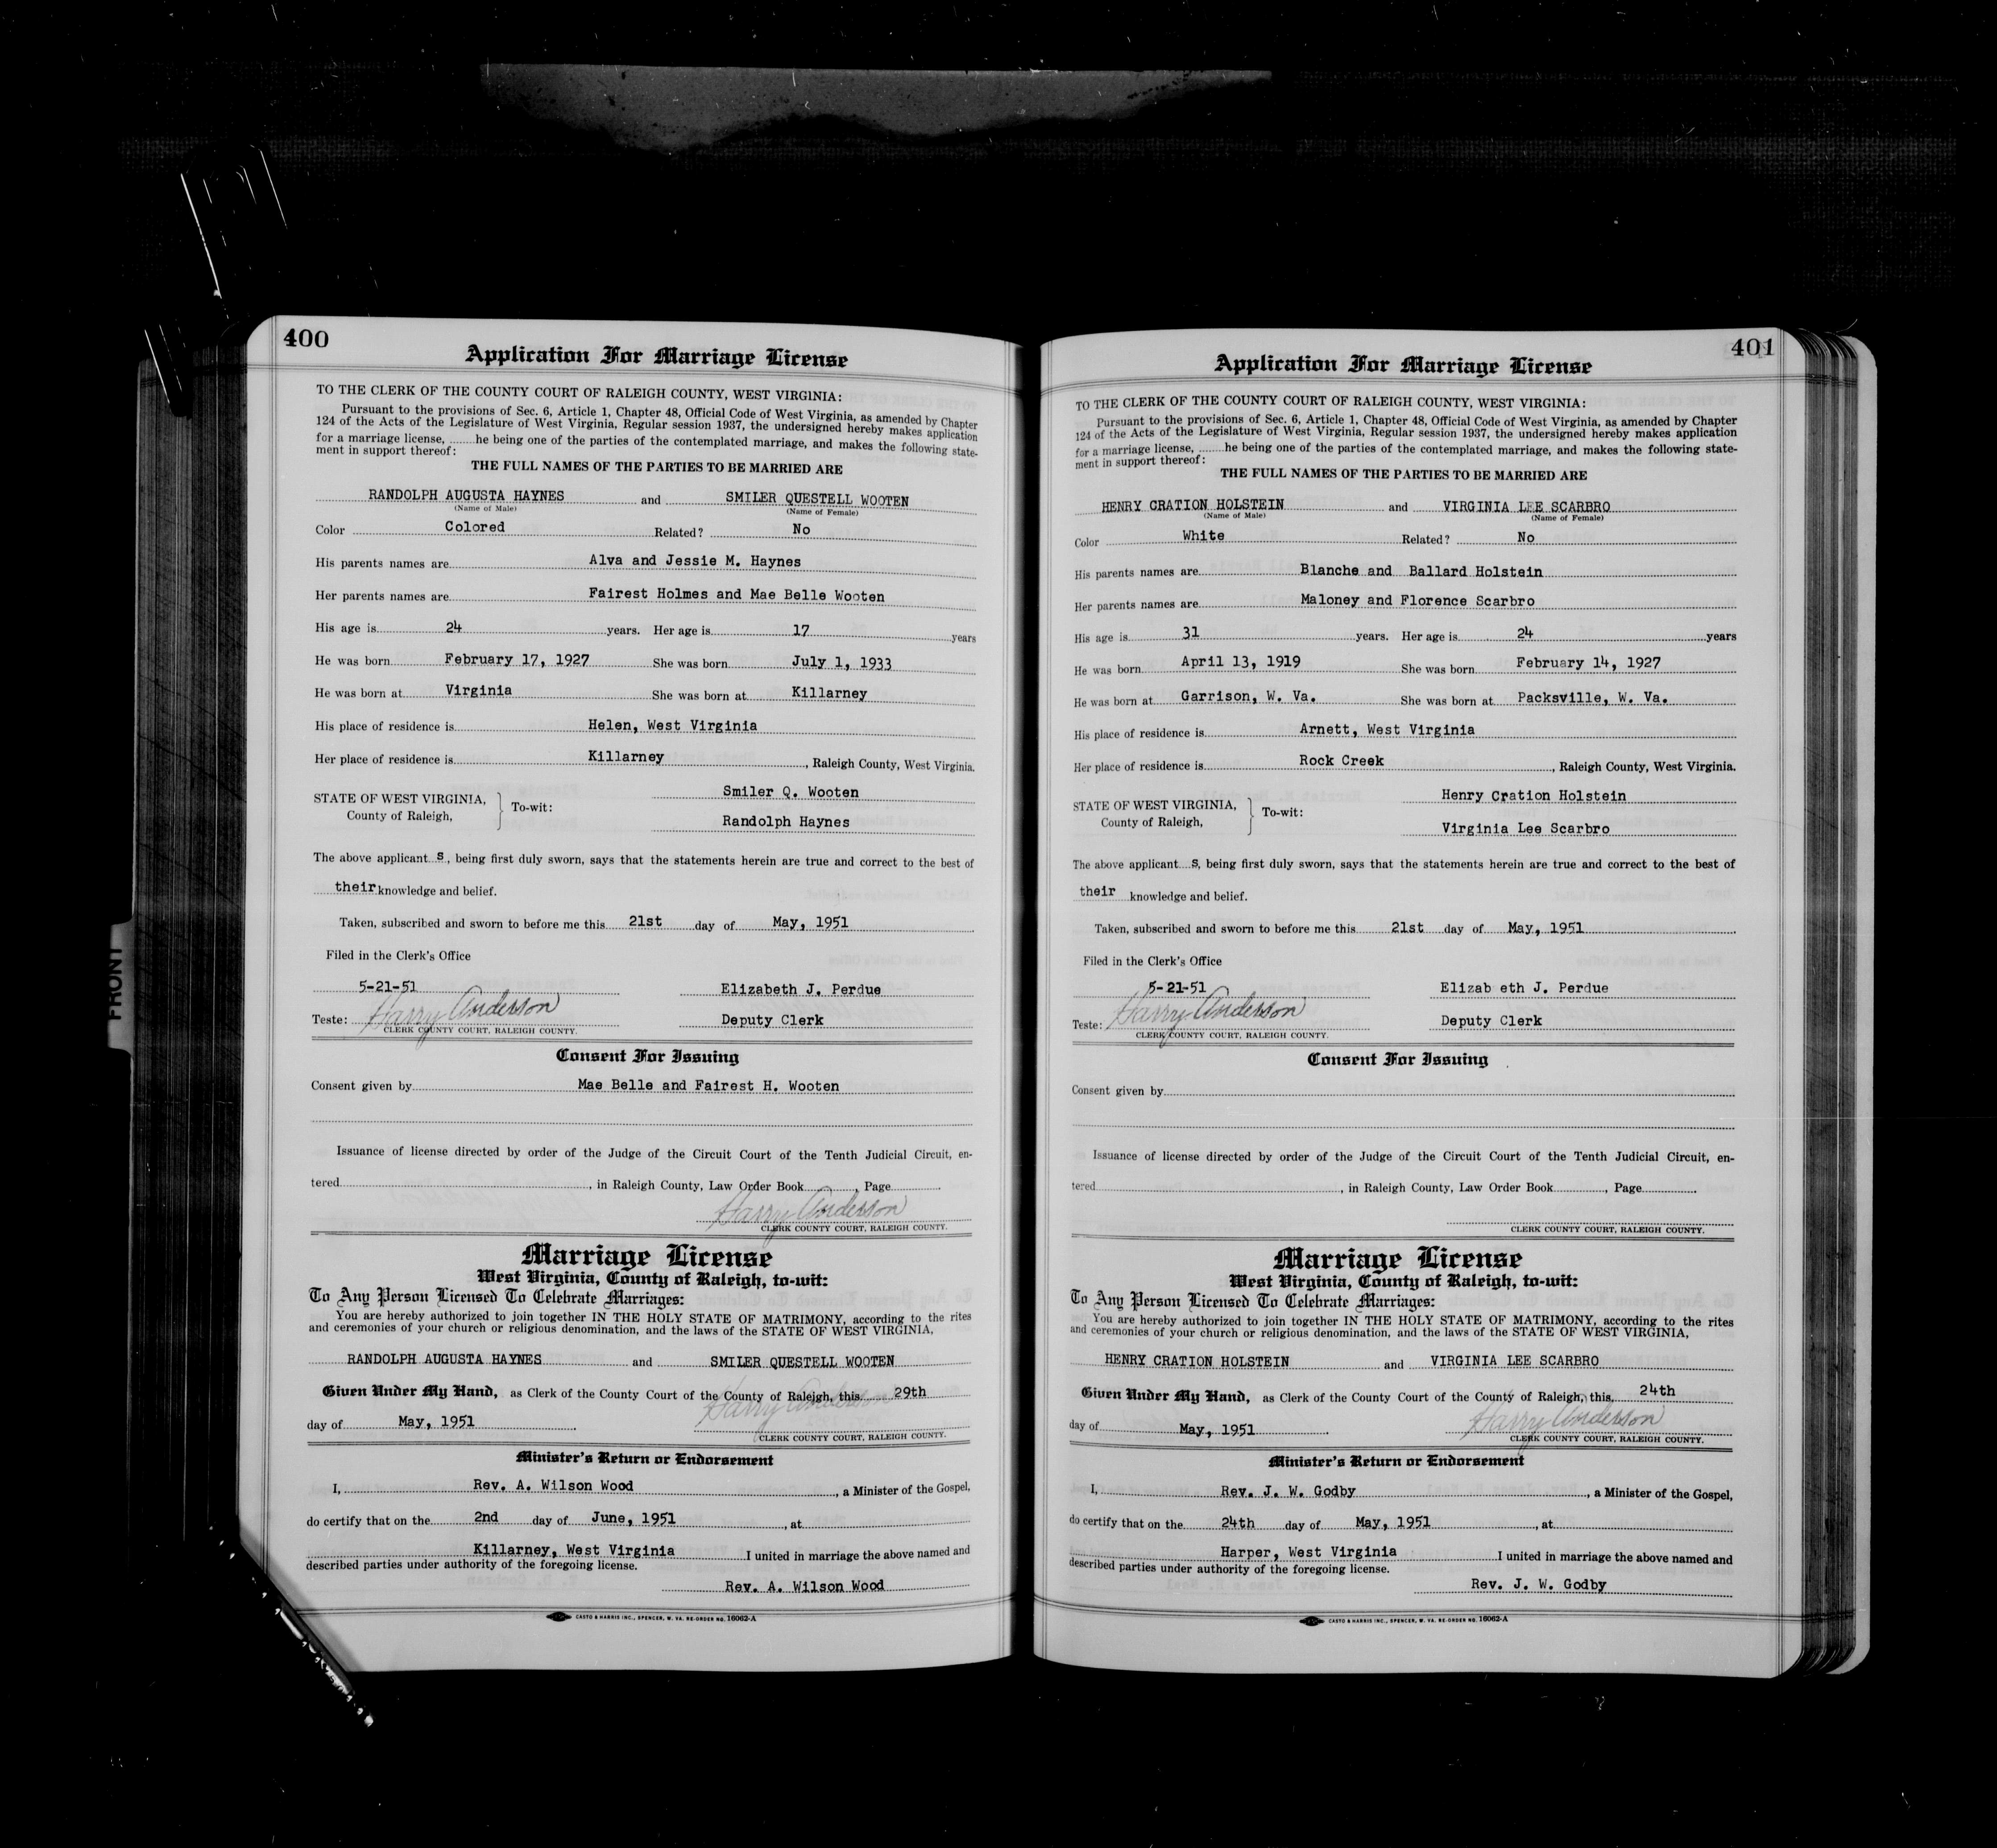 400
Application For Marriage License
TO THE CLERK OF THE COUNTY COURT OF RALEIGH COUNTY, WEST VIRGINIA:
Pursuant to the provisions of Sec. 6, Article 1, Chapter 48, Official Code of West Virginia, as amended by Chapter
124 of the Acts of the Legislature of West Virginia, Regular session 1937, the undersigned hereby makes application
for a marriage license, ........he being one of the parties of the contemplated marriage, and makes the following state-
ment in support thereof:
THE FULL NAMES OF THE PARTIES TO BE MARRIED ARE
RANDOLPH AUGUSTA HAYNES and SMILER QUESTELL WOOTEN
(Name of Male) (Name of Female)
Color Colored Related? No
His parents names are Alva and Jessie M. Haynes
Her parents names are Fairest Holmes and Mae Belle Wooten
His age is 24 years. Her age is 17 years
He was born February 17, 1927 She was born July 1, 1933
He was born at Virginia She was born at Killarney
His place of residence is Helen, West Virginia
Her place of residence is Killarney, Raleigh County, West Virginia.
Smiler Q. Wooten
STATE OF WEST VIRGINIA, To-wit:
County of Raleigh,
Randolph Haynes
The above applicant s, being first duly sworn, says that the statements herein are true and correct to the best of
their knowledge and belief.
Taken, subscribed and sworn to before me this 21st day of May, 1951
Filed in the Clerk's Office
5-21-51 Elizabeth J. Perdue
Teste: Harry Anderson Deputy Clerk
CLERK COUNTY COURT, RALEIGH COUNTY.
Consent For Issuing
Consent given by Mae Belle and Fairest H. Wooten
Issuance of license directed by order of the Judge of the Circuit Court of the Tenth Judicial Circuit, en-
tered, in Raleigh County, Law Order Book, Page
Harry Anderson
CLERK COUNTY COURT, RALEIGH COUNTY.
Marriage License
West Virginia, County of Raleigh, to-wit:
To Any Person Licensed To Celebrate Marriages:
You are hereby authorized to join together IN THE HOLY STATE OF MATRIMONY, according to the rites
and ceremonies of your church or religious denomination, and the laws of the STATE OF WEST VIRGINIA,
RANDOLPH AUGUSTA HAYNES and SMILER QUESTELL WOOTEN
Given Under My Hand, as Clerk of the County Court of the County of Raleigh, this 29th
day of May, 1951 Harry Anderson
CLERK COUNTY COURT, RALEIGH COUNTY.
Minister's Return or Endorsement
I, Rev. A. Wilson Wood, a Minister of the Gospel,
do certify that on the 2nd day of June, 1951, at
Killarney, West Virginia I united in marriage the above named and
described parties under authority of the foregoing license.
Rev. A. Wilson Wood
CASTO & HARRIS INC., SPENCER, W. VA. RE-ORDER NO. 16062-A
FRONT
401
Application For Marriage License
TO THE CLERK OF THE COUNTY COURT OF RALEIGH COUNTY, WEST VIRGINIA:
Pursuant to the provisions of Sec. 6, Article 1, Chapter 48, Official Code of West Virginia, as amended by Chapter
124 of the Acts of the Legislature of West Virginia, Regular session 1937, the undersigned hereby makes application
for a marriage license, ........he being one of the parties of the contemplated marriage, and makes the following state-
ment in support thereof:
THE FULL NAMES OF THE PARTIES TO BE MARRIED ARE
HENRY CRATION HOLSTEIN and VIRGINIA LEE SCARBRO
(Name of Male) (Name of Female)
Color White Related? No
His parents names are Blanche and Ballard Holstein
Her parents names are Maloney and Florence Scarbro
His age is 31 years. Her age is 24 years
He was born April 13, 1919 She was born February 14, 1927
He was born at Garrison, W. Va. She was born at Packsville, W. Va.
His place of residence is Arnett, West Virginia
Her place of residence is Rock Creek, Raleigh County, West Virginia.
Henry Cration Holstein
STATE OF WEST VIRGINIA, To-wit:
County of Raleigh,
Virginia Lee Scarbro
The above applicant s, being first duly sworn, says that the statements herein are true and correct to the best of
their knowledge and belief.
Taken, subscribed and sworn to before me this 21st day of May, 1951
Filed in the Clerk's Office
5-21-51 Elizab eth J. Perdue
Teste: Harry Anderson Deputy Clerk
CLERK COUNTY COURT, RALEIGH COUNTY.
Consent For Issuing
Consent given by
Issuance of license directed by order of the Judge of the Circuit Court of the Tenth Judicial Circuit, en-
tered, in Raleigh County, Law Order Book, Page
CLERK COUNTY COURT, RALEIGH COUNTY.
Marriage License
West Virginia, County of Raleigh, to-wit:
To Any Person Licensed To Celebrate Marriages:
You are hereby authorized to join together IN THE HOLY STATE OF MATRIMONY, according to the rites
and ceremonies of your church or religious denomination, and the laws of the STATE OF WEST VIRGINIA,
HENRY CRATION HOLSTEIN and VIRGINIA LEE SCARBRO
Given Under My Hand, as Clerk of the County Court of the County of Raleigh, this 24th
day of May, 1951 Harry Anderson
CLERK COUNTY COURT, RALEIGH COUNTY.
Minister's Return or Endorsement
I, Rev. J. W. Godby, a Minister of the Gospel,
do certify that on the 24th day of May, 1951, at
Harper, West Virginia I united in marriage the above named and
described parties under authority of the foregoing license.
Rev. J. W. Godby
CASTO & HARRIS INC., SPENCER, W. VA. RE-ORDER NO. 16062-A